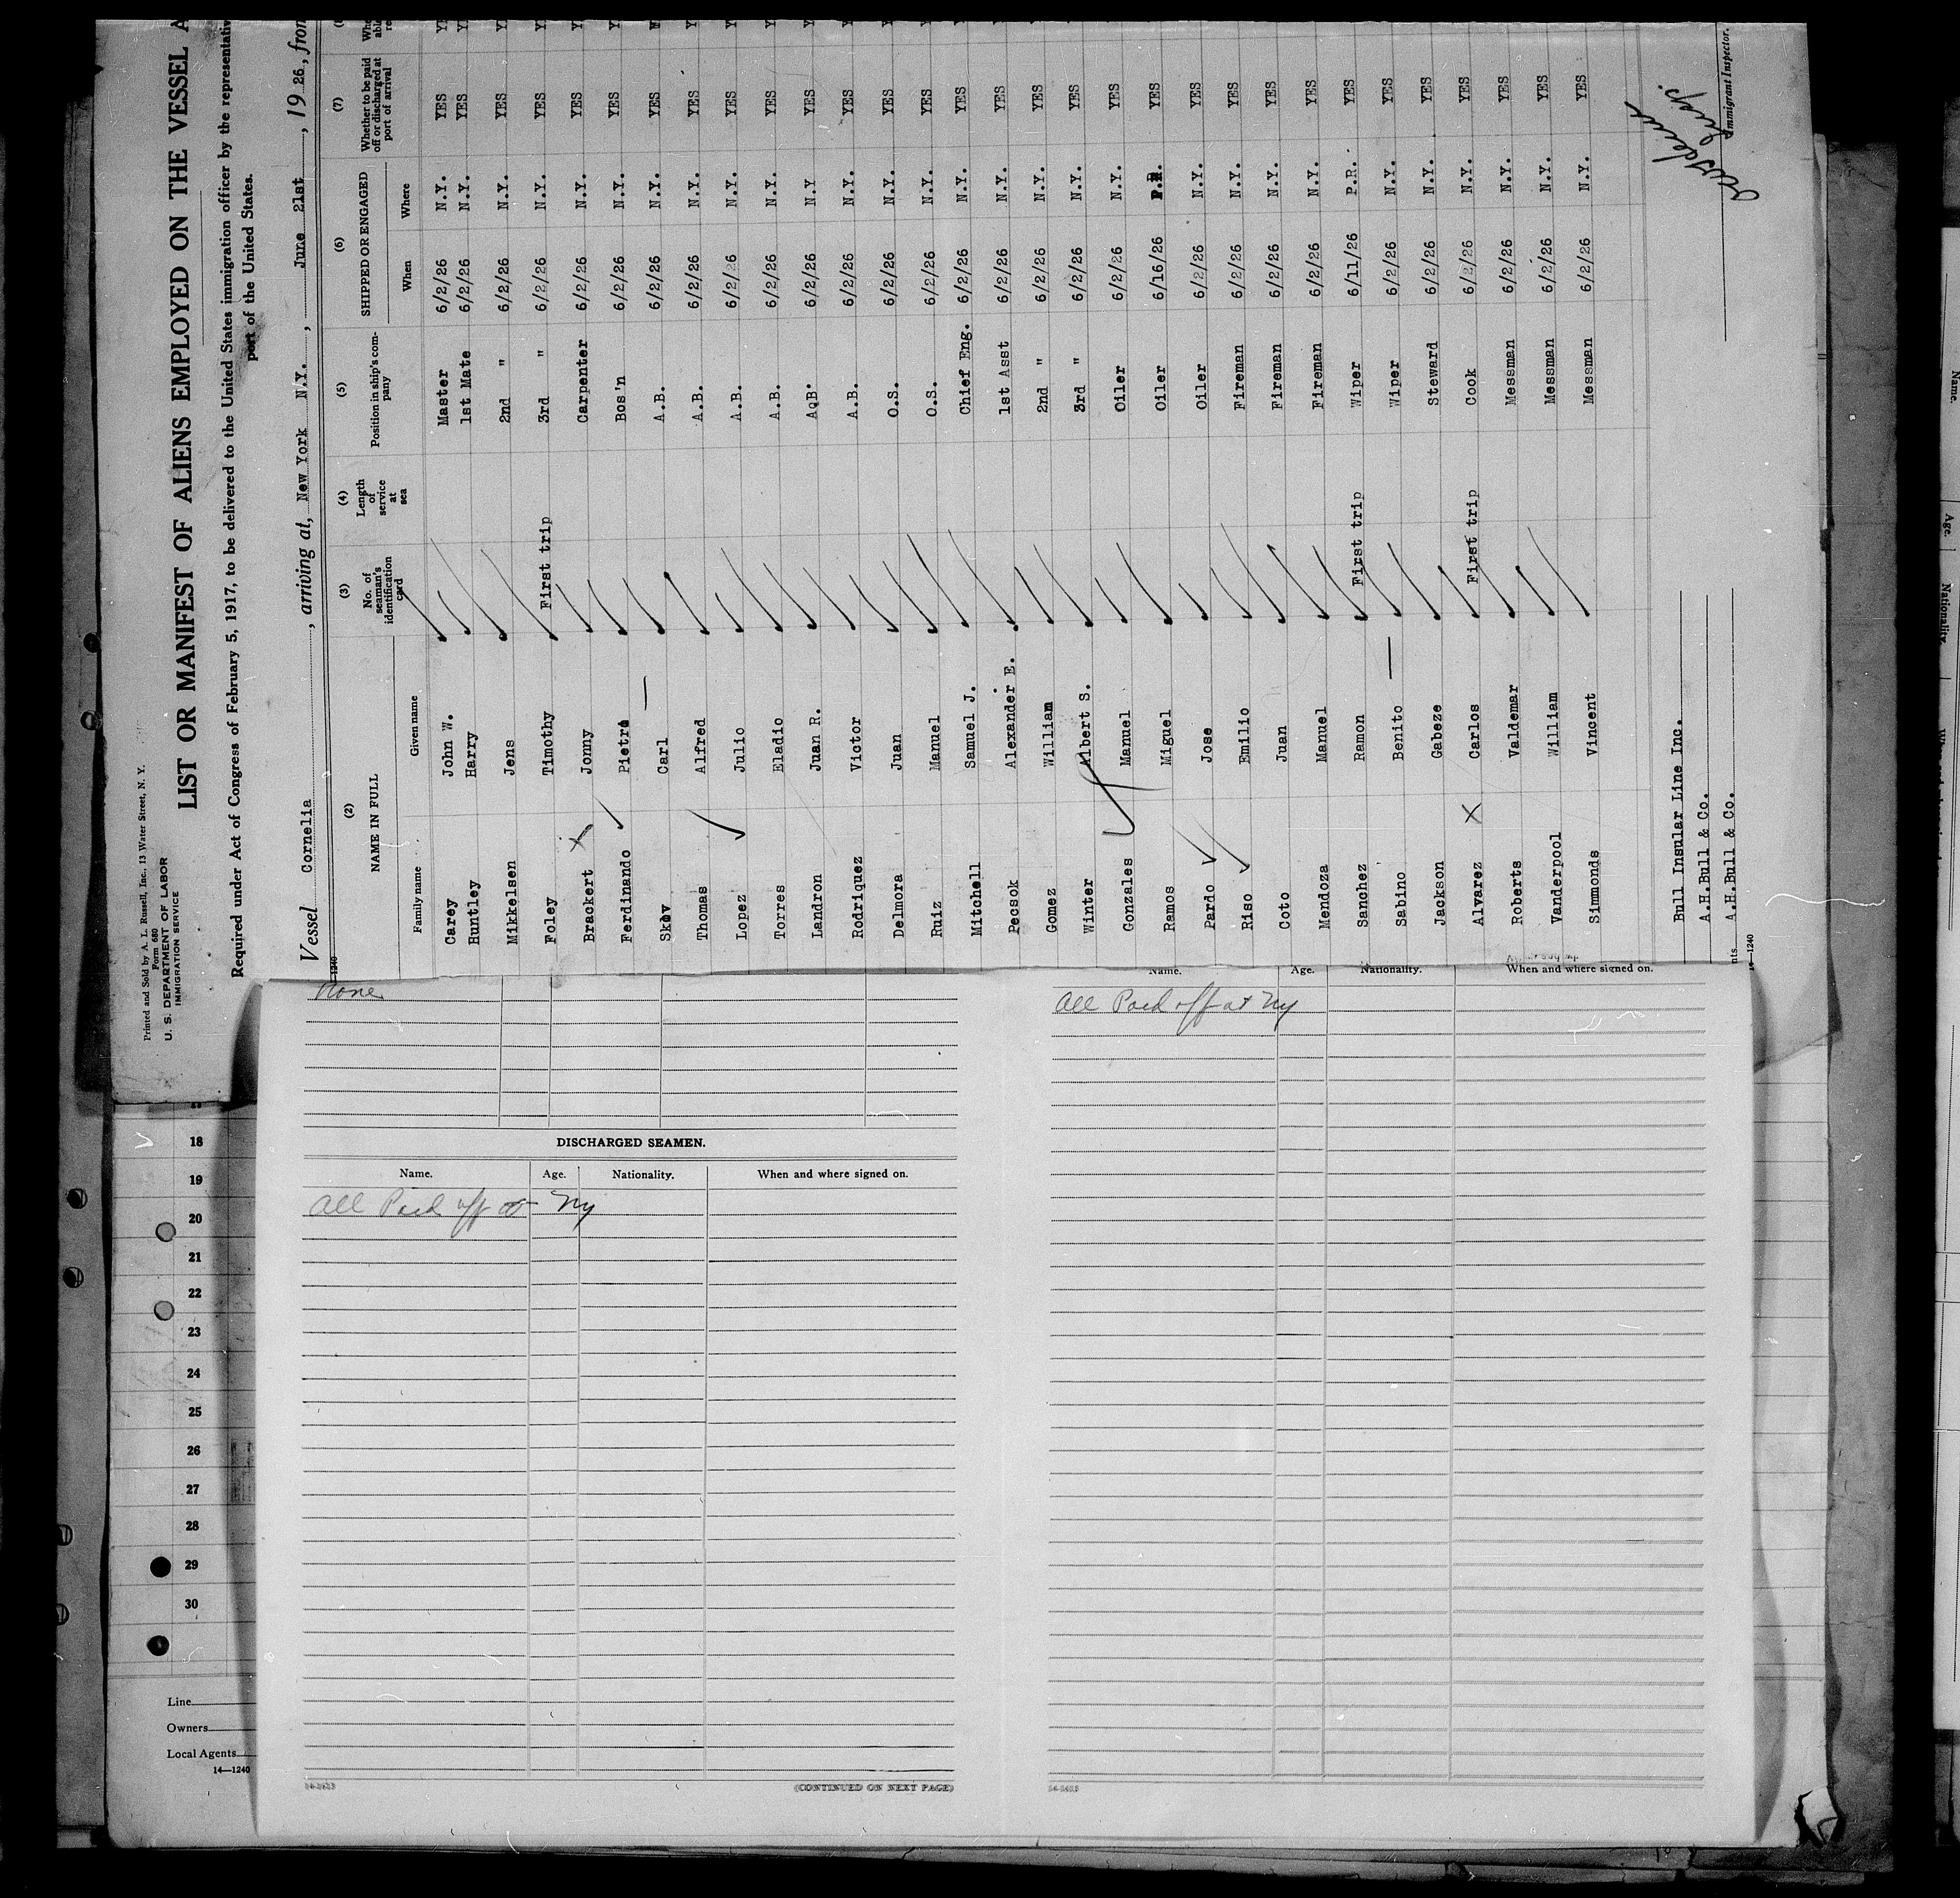 Printed and Sold by A. L. Russell, Inc., 13 Water Street, N. Y.
Form 680
U. S. DEPARTMENT OF LABOR
IMMIGRATION SERVICE
LIST OR MANIFEST OF ALIENS EMPLOYED ON THE VESSEL A
Required under Act of Congress of February 5, 1917, to be delivered to the United States immigration officer by the representativ
port of the United States.
Vessel Cornelia , arriving at, New York N.Y. , June 21st , 19 26 , from
(2) (3) (4) (5) (6) (7)
NAME IN FULL No. of seaman's identification card Length of service at sea Position in ship's company SHIPPED OR ENGAGED Whether to be paid off or discharged at port of arrival
Family name Given name When Where
Carey John W. Master 6/2/26 N.Y. YES
Huntley Harry 1st Mate 6/2/26 N.Y. YES
Mikkelsen Jens 2nd " 6/2/26 N.Y. YES
Foley Timothy First trip 3rd " 6/2/26 N.Y. YES
Brackert Jonny Carpenter 6/2/26 N.Y. YES
Ferdinando Pietro Bos'n 6/2/26 N.Y. YES
Skov Carl A.B. 6/2/26 N.Y. YES
Thomas Alfred A.B. 6/2/26 N.Y. YES
Lopez Julio A.B. 6/2/26 N.Y. YES
Torres Eladio A.B. 6/2/26 N.Y. YES
Landron Juan R. A.B. 6/2/26 N.Y YES
Rodriquez Victor A.B. 6/2/26 N.Y. YES
Delmora Juan O.S. 6/2/26 N.Y. YES
Ruiz Manuel O.S. 6/2/26 N.Y. YES
Mitchell Samuel J. Chief Eng. 6/2/26 N.Y. YES
Pecsok Alexander E. 1st Asst 6/2/26 N.Y. YES
Gomez William 2nd " 6/2/26 N.Y. YES
Winter Albert S. 3rd " 6/2/26 N.Y. YES
Gonzales Manuel Oiler 6/2/26 N.Y. YES
Ramos Miguel Oiler 6/16/26 P.R. YES
Pardo Jose Oiler 6/2/26 N.Y. YES
Riso Emilio Fireman 6/2/26 N.Y. YES
Coto Juan Fireman 6/2/26 N.Y. YES
Mendoza Manuel Fireman 6/2/26 N.Y. YES
Sanchez Ramon First trip Wiper 6/11/26 P.R. YES
Sabino Benito Wiper 6/2/26 N.Y. YES
Jackson Gabeze Steward 6/2/26 N.Y. YES
Alvarez Carlos First trip Cook 6/2/26 N.Y. YES
Roberts Valdemar Messman 6/2/26 N.Y. YES
Vanderpool William Messman 6/2/26 N.Y. YES
Simmonds Vincent Messman 6/2/26 N.Y. YES
Bull Insular Line Inc.
A.H.Bull & Co.
A.H.Bull & Co.
Immigrant Inspector.
14—1240
None
DISCHARGED SEAMEN.
Name. Age. Nationality. When and where signed on.
All Paid off at NY
(CONTINUED ON NEXT PAGE)
Name. Age. Nationality. When and where signed on.
All Paid off at NY
18
19
20
21
22
23
24
25
26
27
28
29
30
Line
Owners
Local Agents
14—1240
Name.
Age.
Nationality.